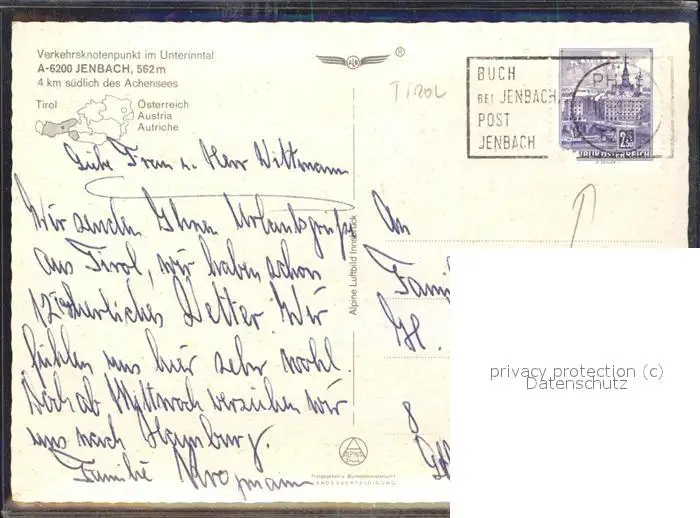 Verkehrsknotenpunkt im Unterinntal
A-6200 JENBACH, 562 m
4 km südlich des Achensees
Tirol
Österreich
Austria
Autriche
®
TIROL
BUCH
BEI JENBACH
POST
JENBACH
2.50
REPUBLIK ÖSTERREICH
Liebe Frau u. Herr Wittmann
Wir senden Ihnen Urlaubsgrüße
aus Tirol, wir haben schon
Wetter. Wir
fühlen uns hier sehr wohl.
Doch ab Mittwoch verziehen wir
uns nach Hamburg.
Familie
Alpine Luftbild Innsbruck
An
Fami
8
ALPINA
Freigegeben v. Bundesministerium f.
LANDESVERTEIDIGUNG
privacy protection (c)
Datenschutz